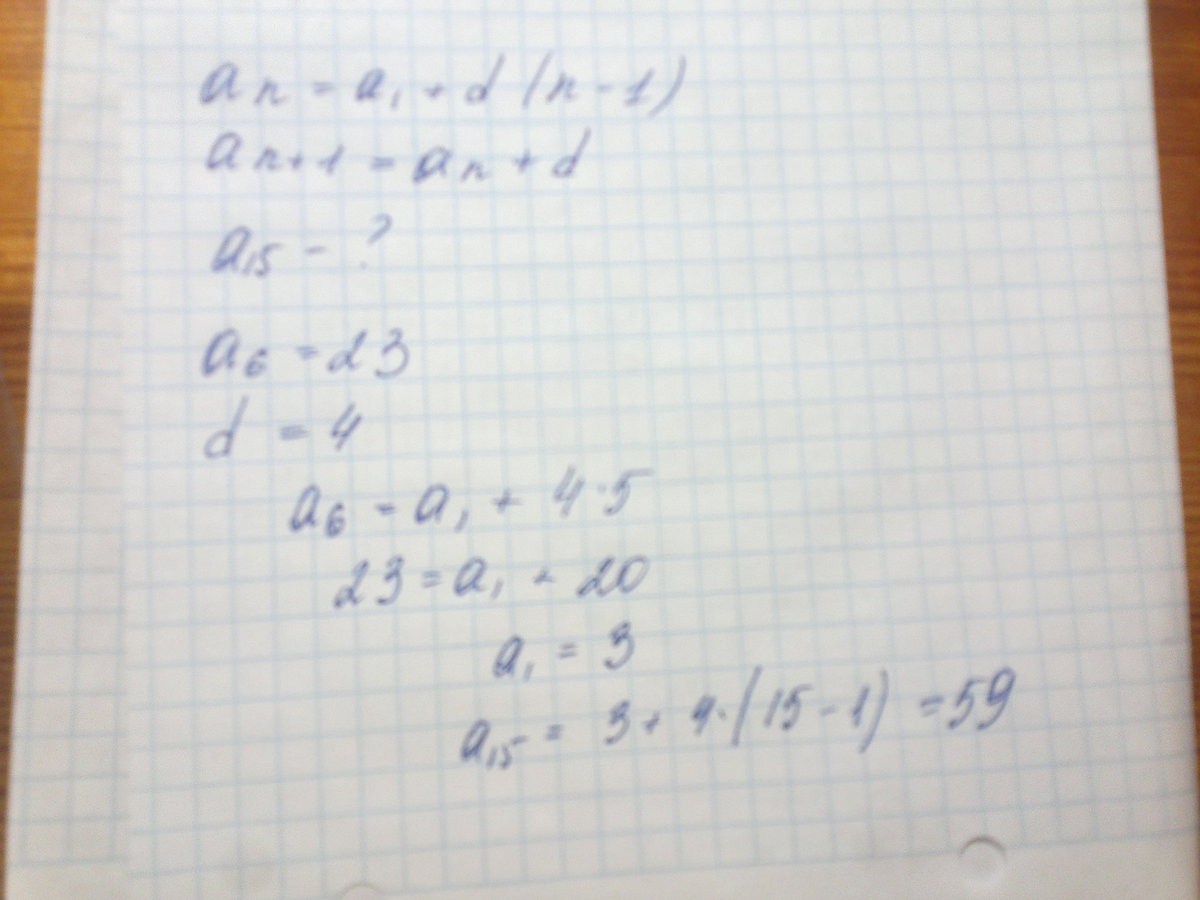 an = a1 + d (n - 1)
an+1 = an + d
a15 - ?
a6 = 23
d = 4
a6 = a1 + 4·5
23 = a1 + 20
a1 = 3
a15 = 3 + 4·(15 - 1) = 59